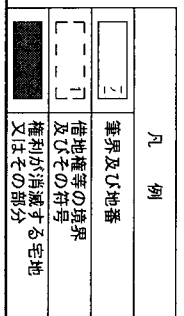 凡 例
筆界及び地番
借地権等の境界
及びその符号
権利が消滅する宅地
又はその部分